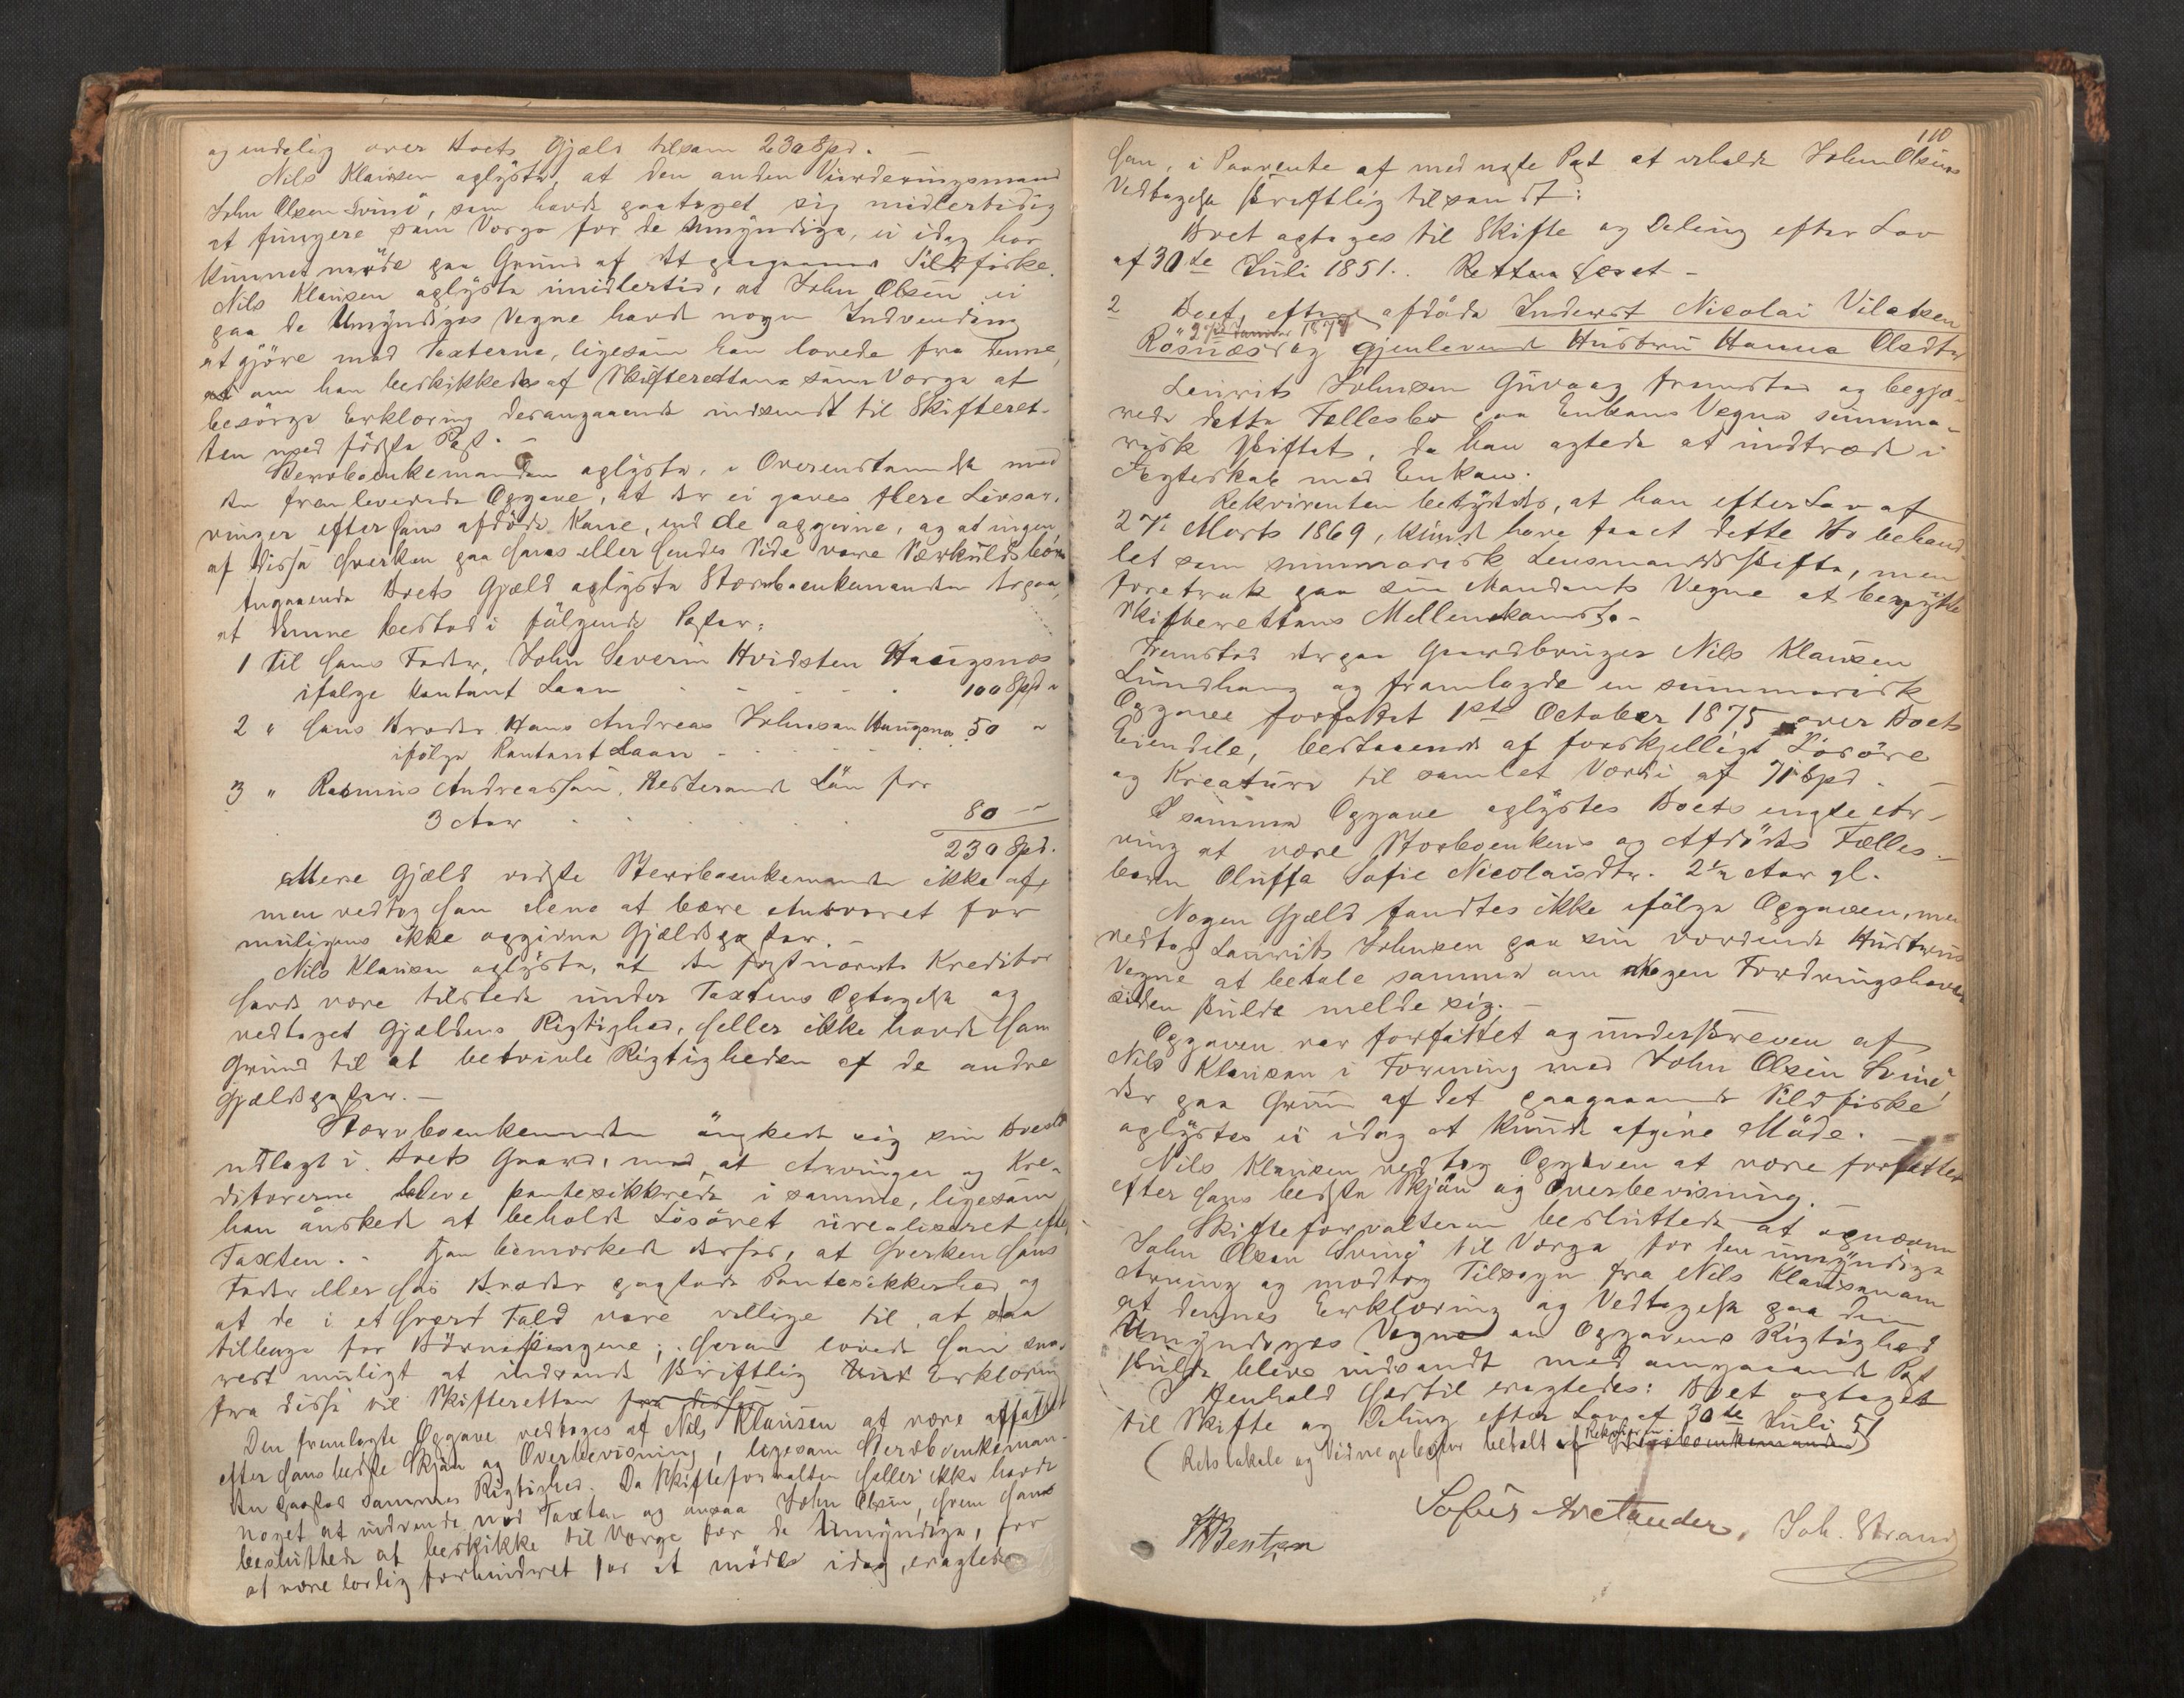 og endelig over Boets Gjæld tilsam 230 Spd. —
Nils Klausen oplyste, at den anden Vurderingsmand
John Olsen Svinö, som havde paataget sig midlertidig
at fungere som Værge for de Umyndige, ei idag har
kunnet møde paa Grund af det paagaaende Sildfiske.
Nils Klausen oplyste imidlertid, at John Olsen ei
paa de Umyndiges Vegne havde nogen Indvending
at gjöre mod Taxterne, ligesom han lovede fra denne,
at om han beskikkedes af Skifteretten som Værge at
besörge Erklæring desangaaende indsendt til Skifteret-
ten med förste Post. —
Stervboenkemanden oplyste, i Overenstemmelse med
den fremleverede Opgave, at der ei gaves flere Livsar-
vinger efter hans afdöde Kone, end de opgivne, og at ingen
af disse hverken paa hans eller hendes Side vare Særkuldsbörn
Angaaende Boets Gjæld oplyste Stervboenkemanden derpaa,
at denne bestod i fölgende Poster:
1 Til hans Fader, John Severin Hvidsten Haugsnes
ifölge kontant Laan - - - - - 100 Spd "
2 " hans Broder Hans Andreas Johnsen Haugsnes 50 "
ifölge kontant Laan - - - - -
3 " Rasmus Andreassen, Resterende Lön for
3 Aar - - - - - 80 —
230 Spd.
Mere Gjæld vidste Stervboenkemanden ikke af,
men vedtog han alene at bære Ansvaret for
muligens ikke opgivne Gjældsposter. —
Nils Klausen oplyste, at den sidstnævnte Kreditor
havde være tilstede under Taxtens Optagelse og
vedtaget Gjældens Rigtighed, heller ikke havde han
Grund til at betvivle Rigtigheden af de andre
Gjældsposter. —
Stervboenkemanden önskede sig sin Broslod
udlagt i Boets Gaard, mod, at Arvinger og Kre-
ditorerne bleve pantesikkrede i samme, ligesom
han önskede at beholde Lösöret urealiseret efter
Taxten. - Han bemærkede derhos, at hverken hans
Fader eller hans Broder paastode Pantesikkerhed, og
at de i et hvert Fald vare villige til, at staa
tilbage for Börnepengene; herom lovede han sna-
rest muligt at indsende skriftlig Erklæring
fra disse til Skifteretten fra disse
Den fremlagte Opgave vedtoges af Nils Klausen at være affattet
efter hans bedste Skjön og Overbevisning, ligesom Stervboenkeman-
den paastod sammes Rigtighed. Da Skifteforvalteren heller ikke havde
noget at indvende mod Taxten og ansaa John Olsen, hvem han
besluttede at beskikke til Værge for de Umyndige, for
at være lovlig forhindret for at møde idag, eragtedes
110
han, i Paavente af med næste Post at erholde John Olsens
Vedtagelse skriftlig tilsendt:
Boet optages til Skifte og Deling efter Lov
af 30te Juli 1851. Retten hævet -
2 Boet efter afdöde Inderst Nicolai Vilatsen
Rösnæs og gjenlevende Hustru Hanna Olsdtr
Laurits Johnsen Guvaag fremstod og begjæ-
rede dette Fællesbo paa Enkens Vegne summa-
risk skiftet, da han agtede at indtræde i
Ægteskab med Enken.
Rekvirenten betydedes, at han efter Lov af
27de Marts 1869, kunde have faaet dette Bo behand-
let som summarisk Lensmandsskifte, men
foretrak paa sin Mandants Vegne at benytte
Skifterettens Mellemkomst. -
Fremstod derpaa Gaardbruger Nils Klausen
Lundhaug og fremlagde en summarisk
Opgave forfattet 1ste October 1875 over Boets
Eiendele, bestaaende af forskjelligt Lösöre
og Kreature til samlet Værdi af 71 Spd. —
I samme Opgave oplystes Boets eneste Ar-
ving at være Stervboenkens og Afdödes Fælles-
barn Oluffa Sofie Nicolaisdtr. 2½ Aar gl.
Nogen Gjæld fandtes ikke ifölge Opgaven, men
vedtog Laurits Johnsen paa sin vordende Hustrus
Vegne at betale samme om Nogen Fordringshaver
siden skulde melde sig. —
Opgaven var forfattet og underskreven af
Nils Klausen i Forening med John Olsen Svinö,
der paa Grund af det paagaaende Sildfiske
oplystes ei idag at kunde afgive Möde. —
Nils Klausen vedtog Opgaven at være forfattet
efter hans bedste Skjön og Overbevisning.
Skifteforvalteren besluttede at opnævne
John Olsen Svinö til Værge for den umyndige
Arving og modtog Tilsagn fra Nils Klausen om
at dennes Erklæring og Vedtagelse paa den
Umyndiges Vegne om Opgavens Rigtighed
skulde blive indsendt med omgaaende Post
I Henhold hertil eragtedes: Boet optaget
til Skifte og Deling efter Lov af 30te Juli 51
(Retslokale og Vidnegebyhr betalt af Rekvirenten Stervboenkemanden)
Sofus Arctander, Joh. Strand
Bentzen